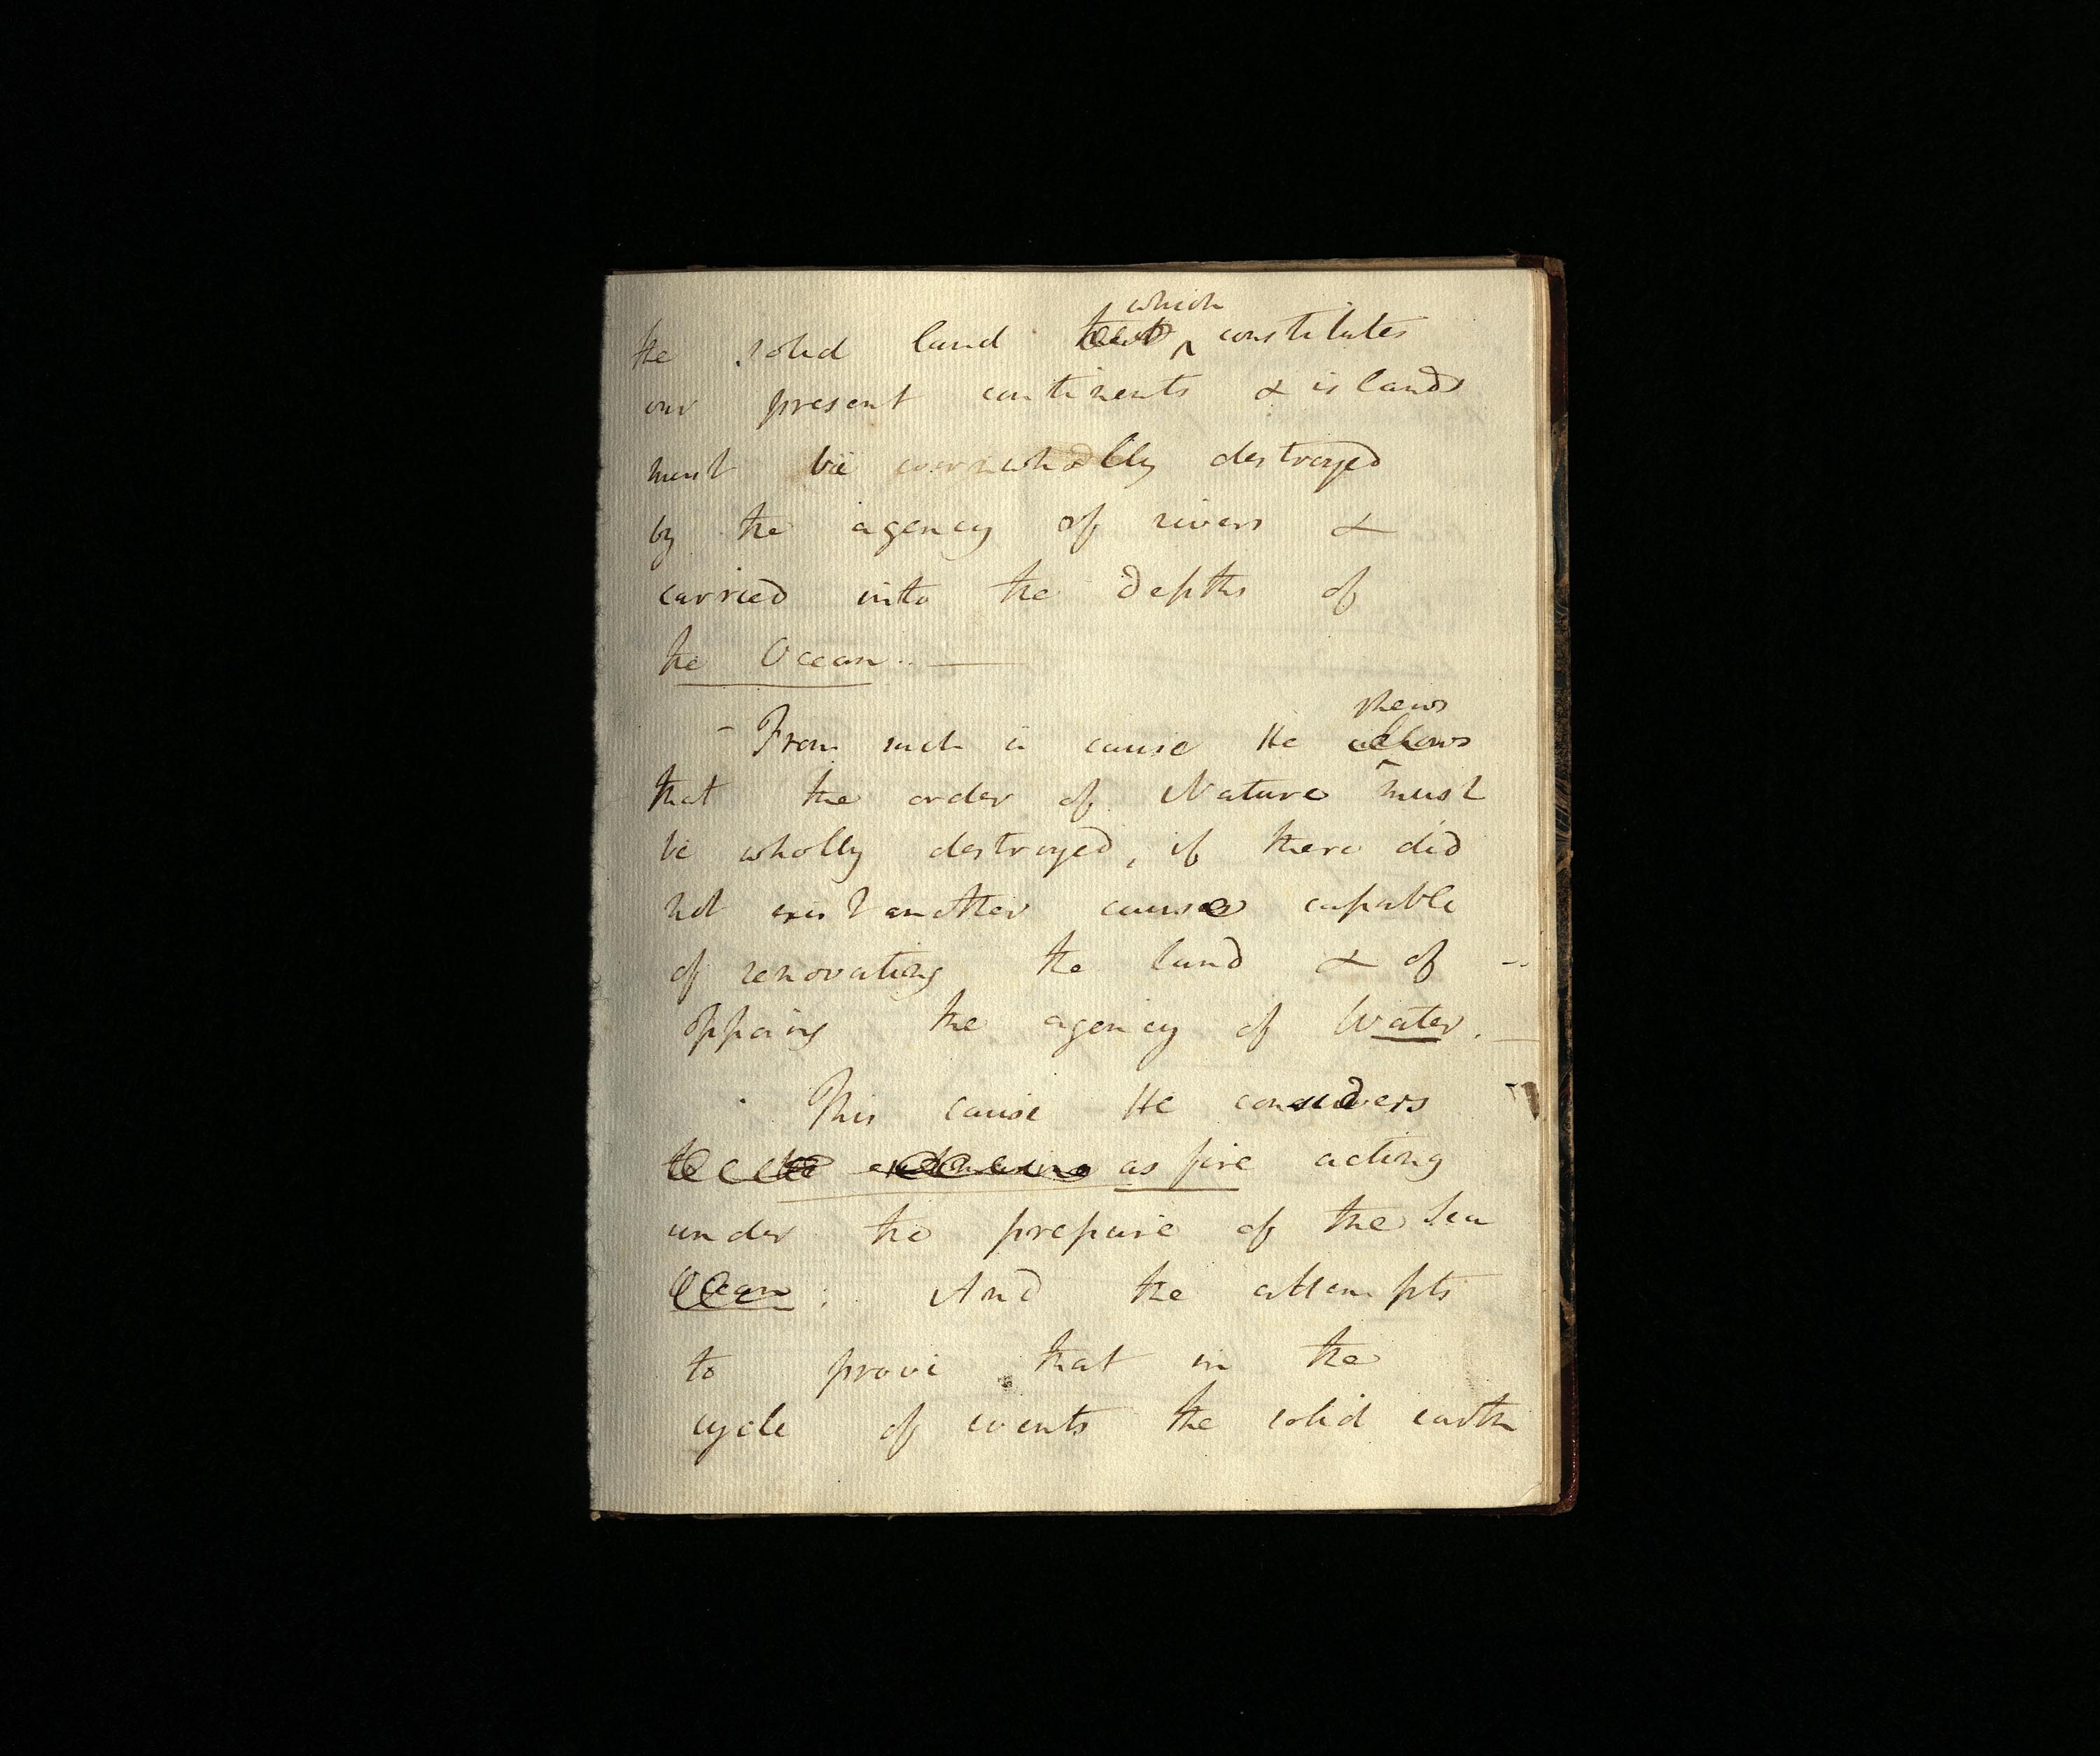 which
the solid land that ^ constitutes
our present continents & islands
must be wholly destroyed
by the agency of rivers &
carried into the depths of
the Ocean. —
shews
- From such a cause He allows
that the order of Nature must
be wholly destroyed, if there did
not exist another cause capable
of renovating the land & of --
opposing the agency of Water. —
This cause He considers
as fire acting
under the pressure of the Sea
Ocean; And the attempts
to prove that in the
cycle of events the solid earth